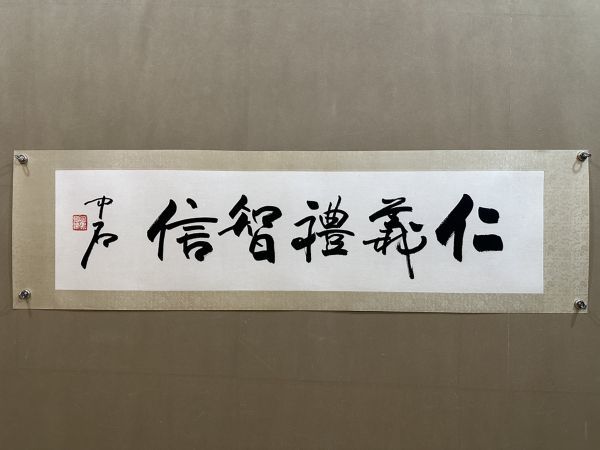 仁義禮智信
中石